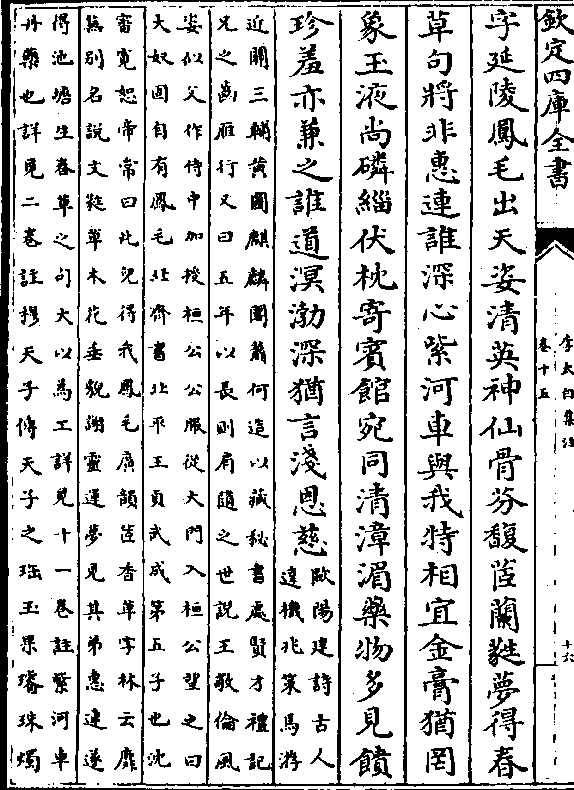 欽定四庫全書
李太白集注
卷十五
十六
字延陵鳳毛出天姿清英神仙骨芬馥茝蘭蕤夢得春
草句將非惠連誰深心紫河車與我特相宜金膏猶罔
象玉液尚磷緇伏枕寄賓館宛同清漳湄藥物多見饋
珍羞亦兼之誰道溟渤深猶言淺恩慈
歐陽建詩古人
達機兆策馬游
近關三輔黃圖麒麟閣蕭何造以藏秘書處賢才禮記
兄之齒雁行又曰五年以長則肩隨之世說王敬倫風
姿似父作侍中加授桓公公服從大門入桓公望之曰
大奴固自有鳳毛北齊書北平王貞武成第五子也沈
審寬恕帝常曰此兒得我鳳毛廣韻茝香草字林云蘼
蕪別名說文蕤草木花垂貌謝靈運夢見其弟惠連遂
得池塘生春草之句大以為工詳見十一卷註紫河車
丹藥也詳見二卷註穆天子傳天子之珤玉果璿珠燭